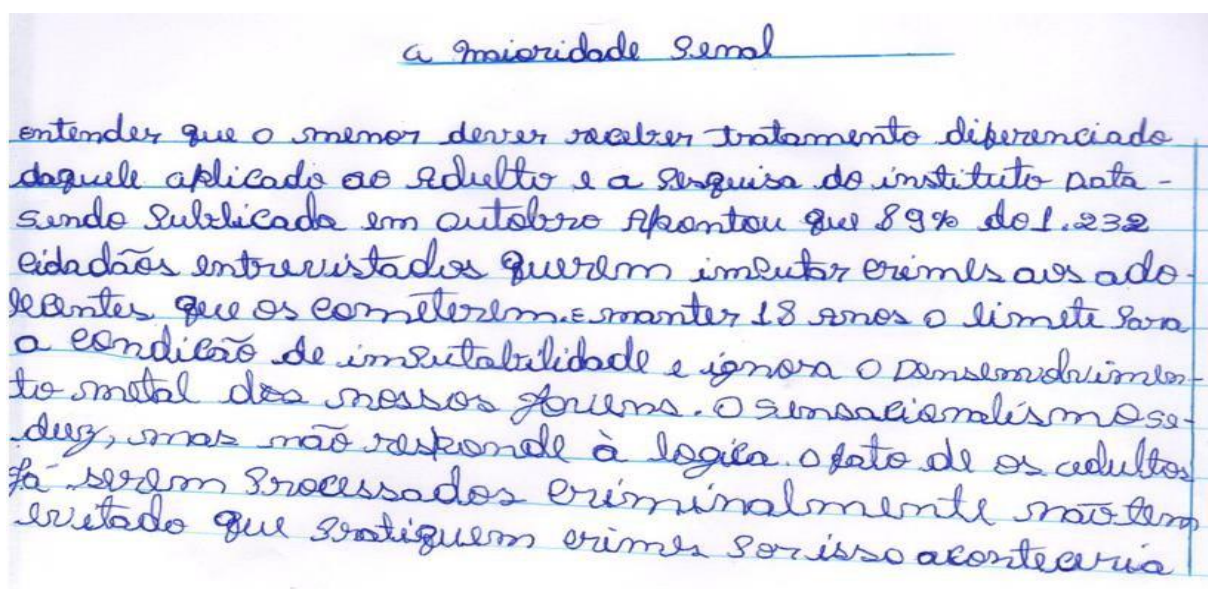 a maioridade Penal
entender que o menor dever receber tratamento diferenciado
daquele aplicado ao Adultto e a Pesquisa do instituto Data-
sendo Publicada em outobro Apontou que 89% do 1.232
cidadãos entrevistados querem imputar crimes aos ado-
lecentes que os cometerem. E manter 18 anos o limete Para
a condicão de imputabilidade e ignora o Densemvolvimen-
to metal dos nossos Jovens. O sensacionalismo se-
duz, mas não responde à logica. o fato de os adultos
Já serem Processados criminalmente não tem
evitado que Pratiquem crimes Por isso aconteceria